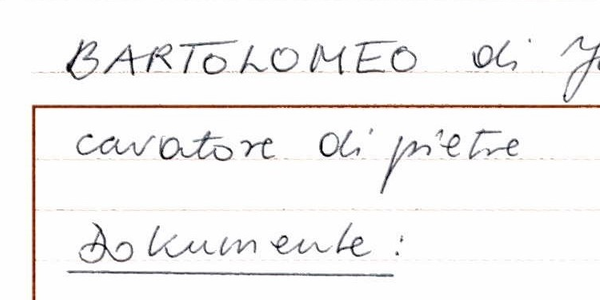 BARTOLOMEO di
cavatore di pietre
Dokumente: